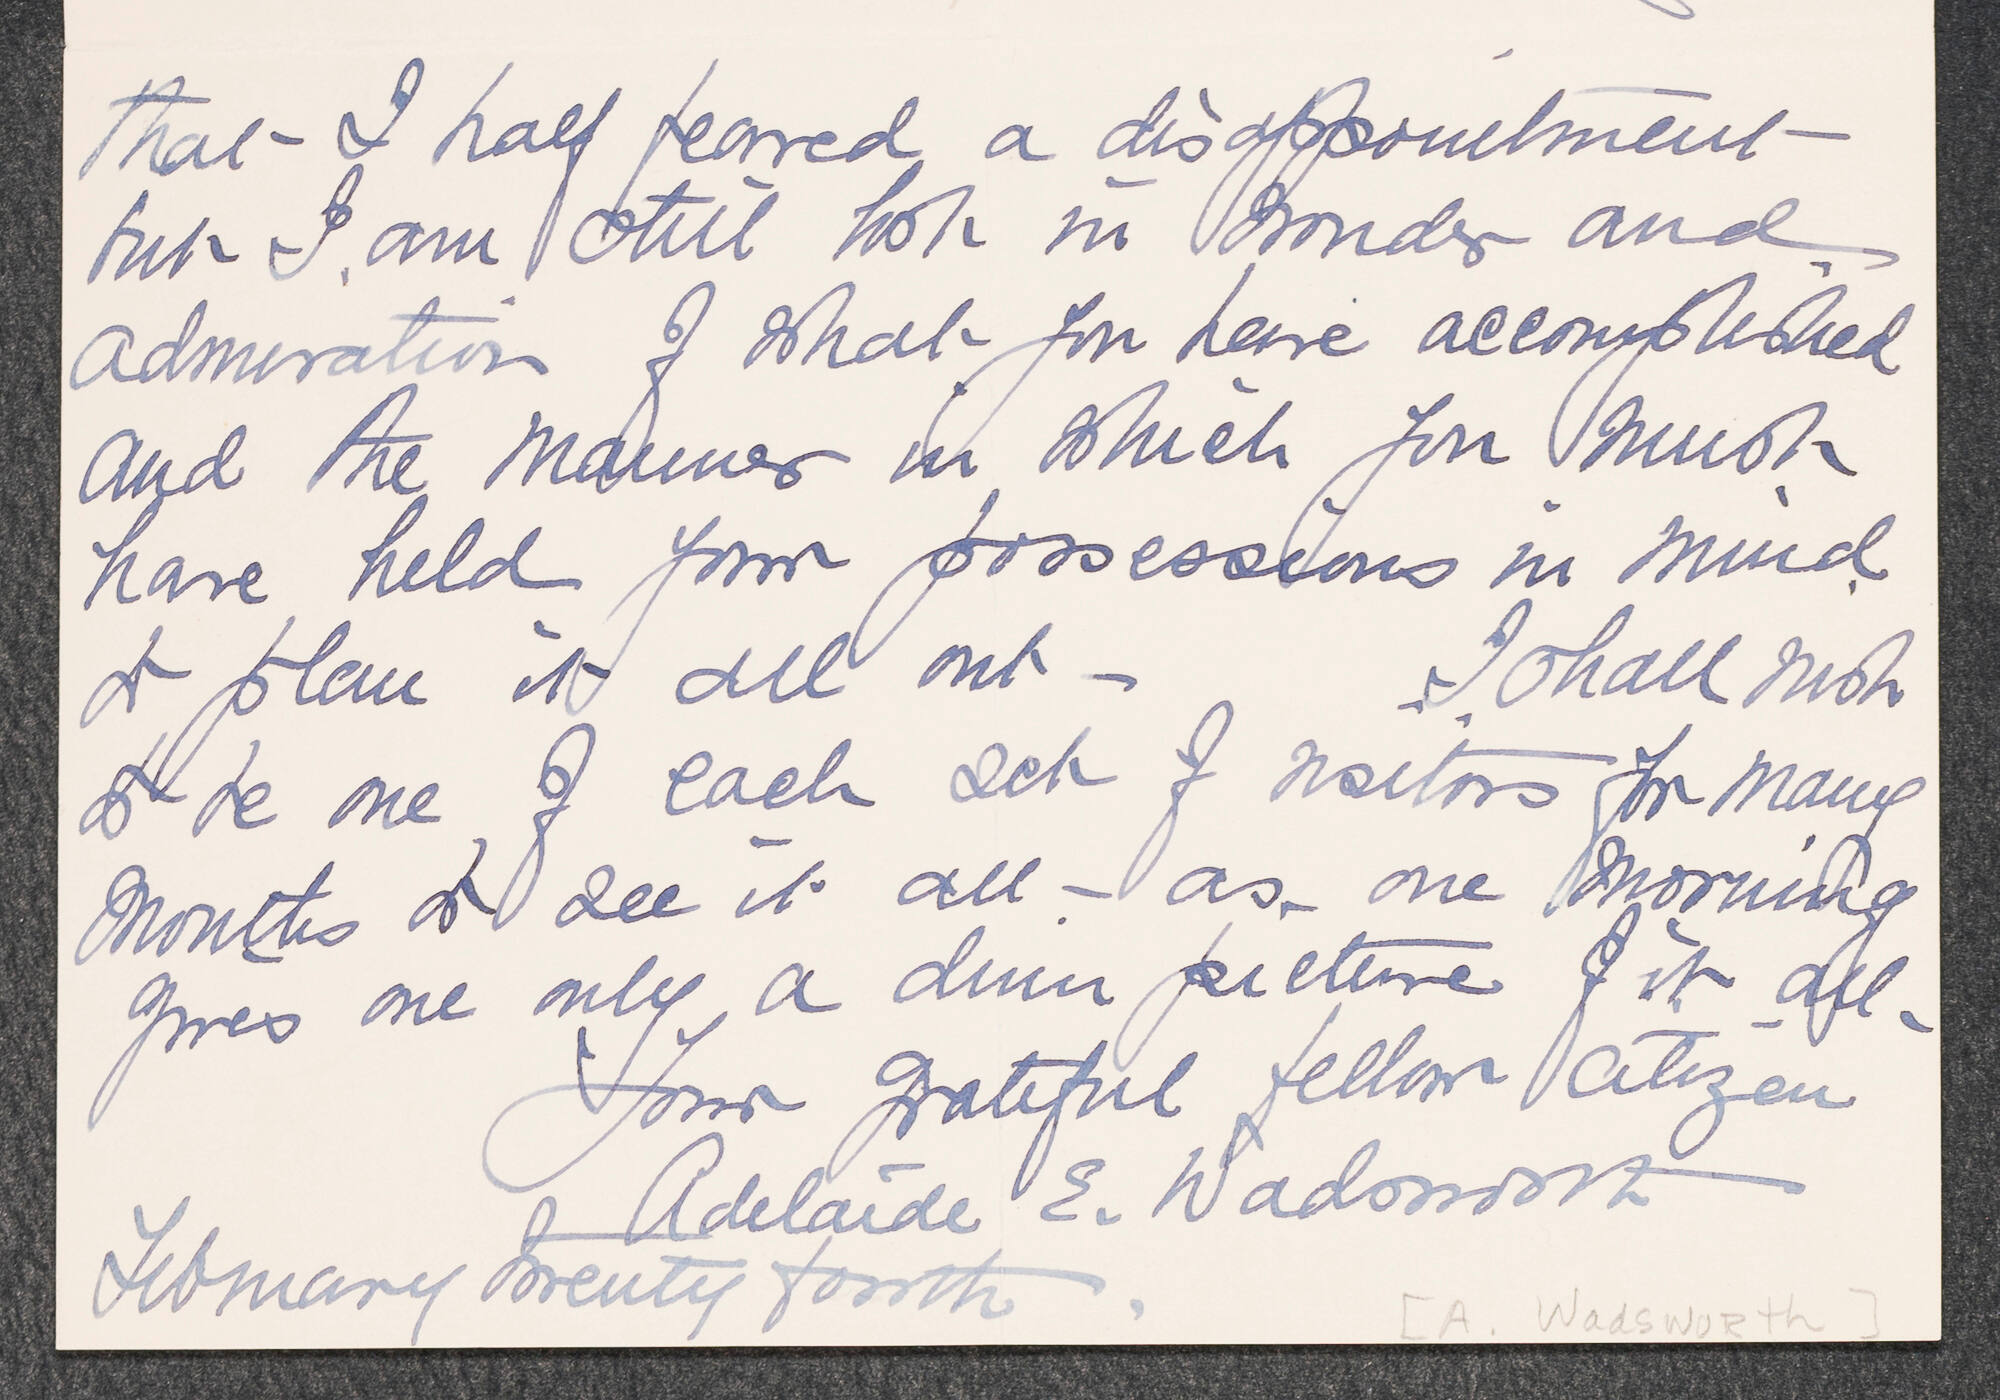 that I half feared a disappointment —
but I am still lost in wonder and
admiration of what you have accomplished
and the manner in which you must
have held your possessions in mind
to plan it all out — I shall wish
to be one of each set of visitors for many
months to see it all — as one morning
gives one only a dim picture of it all.
Your grateful fellow citizen
Adelaide E. Wadsworth
February twenty fourth.
[A. Wadsworth]